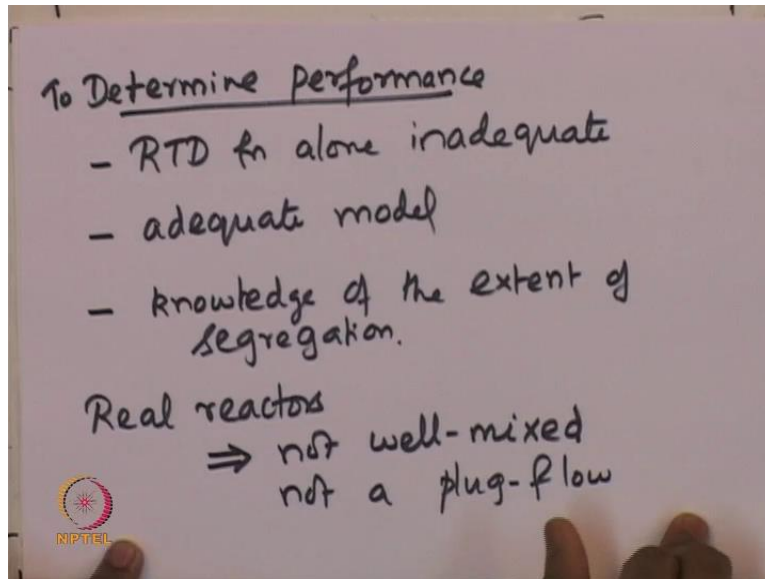 To Determine performance
- RTD fn alone inadequate
- adequate model
- knowledge of the extent of
segregation.
Real reactors
⇒ not well-mixed
not a plug-flow
NPTEL